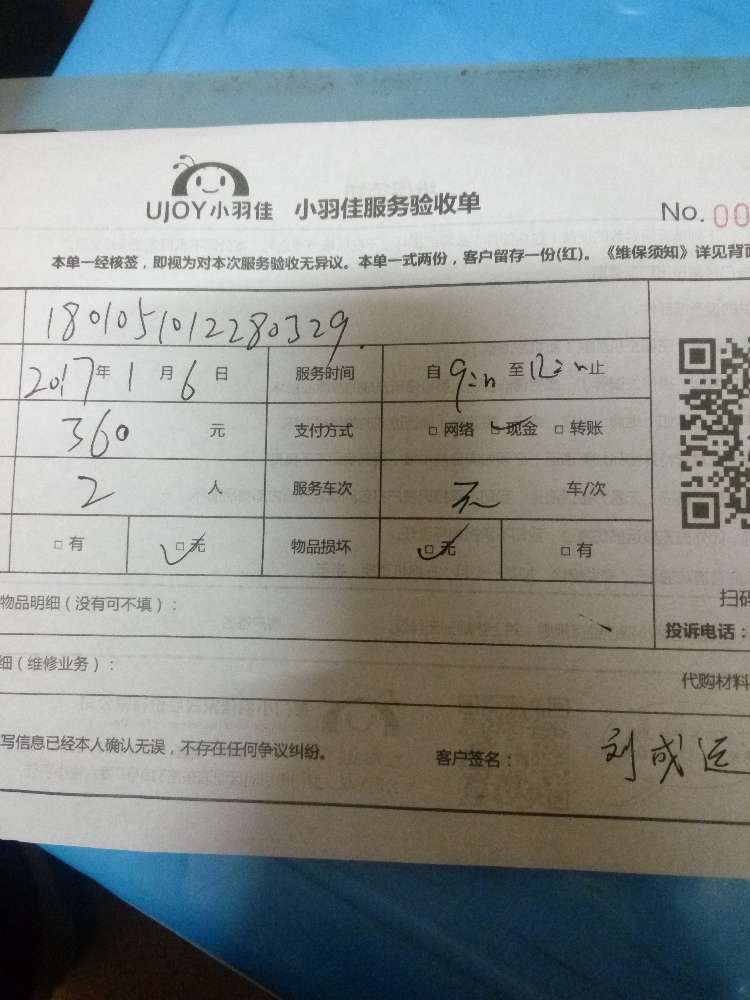 UJOY小羽佳 小羽佳服务验收单
No. 00
本单一经核签，即视为对本次服务验收无异议。本单一式两份，客户留存一份(红)。《维保须知》详见背面
180105101228032​9
2017年 1月 6日 服务时间 自 9:n 至 12:n 止
360 元 支付方式 □ 网络 □ 现金 □ 转账
2 人 服务车次 无 车/次
□ 有 □ 无 物品损坏 □ 无 □ 有
物品明细（没有可不填）：
扫码
投诉电话：
细（维修业务）：
代购材料
写信息已经本人确认无误，不存在任何争议纠纷。 客户签名： 刘成运